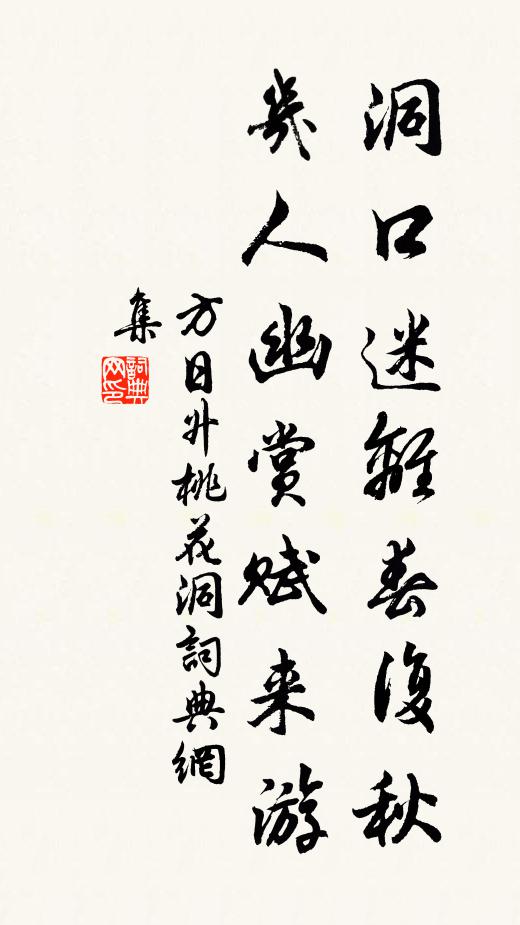 洞口迷離春復秋
幾人幽賞賦来游
方日升桃花洞詞典網
集
詞典
网印